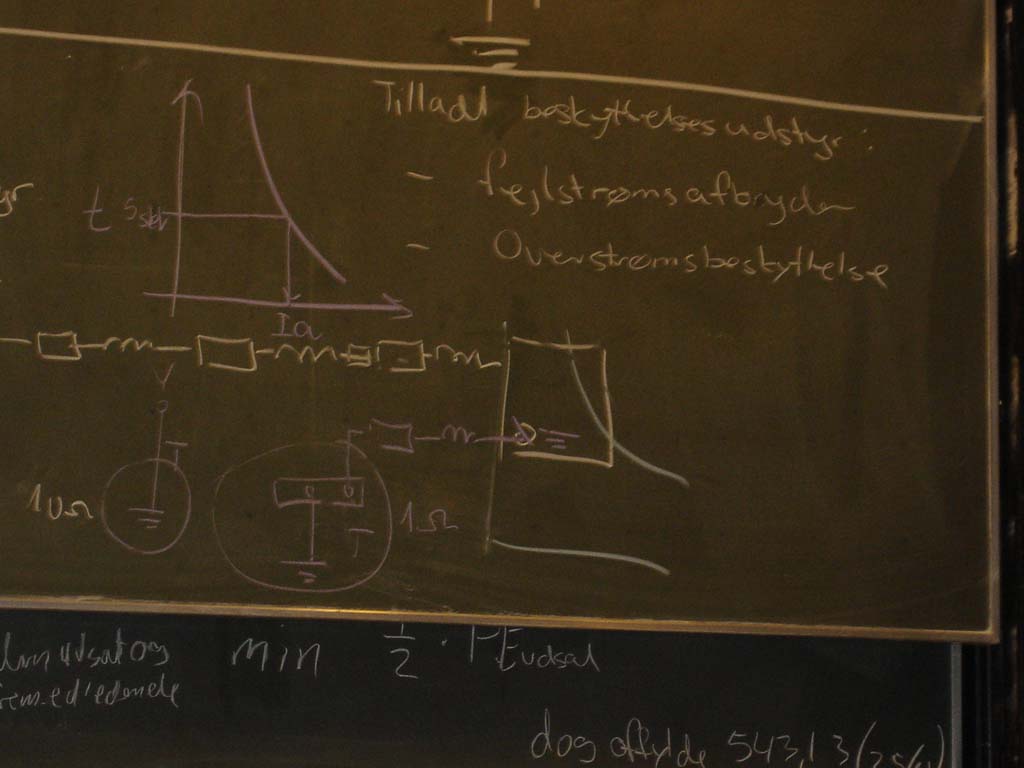 Tilladt beskyttelsesudstyr:
- fejlstrømsafbryder
- Overstrømsbeskyttelse
t 5 sek
Ia
10Ω
T
1Ω
T
min 1/2 · PEudsat
dog opfylde 543.1.3